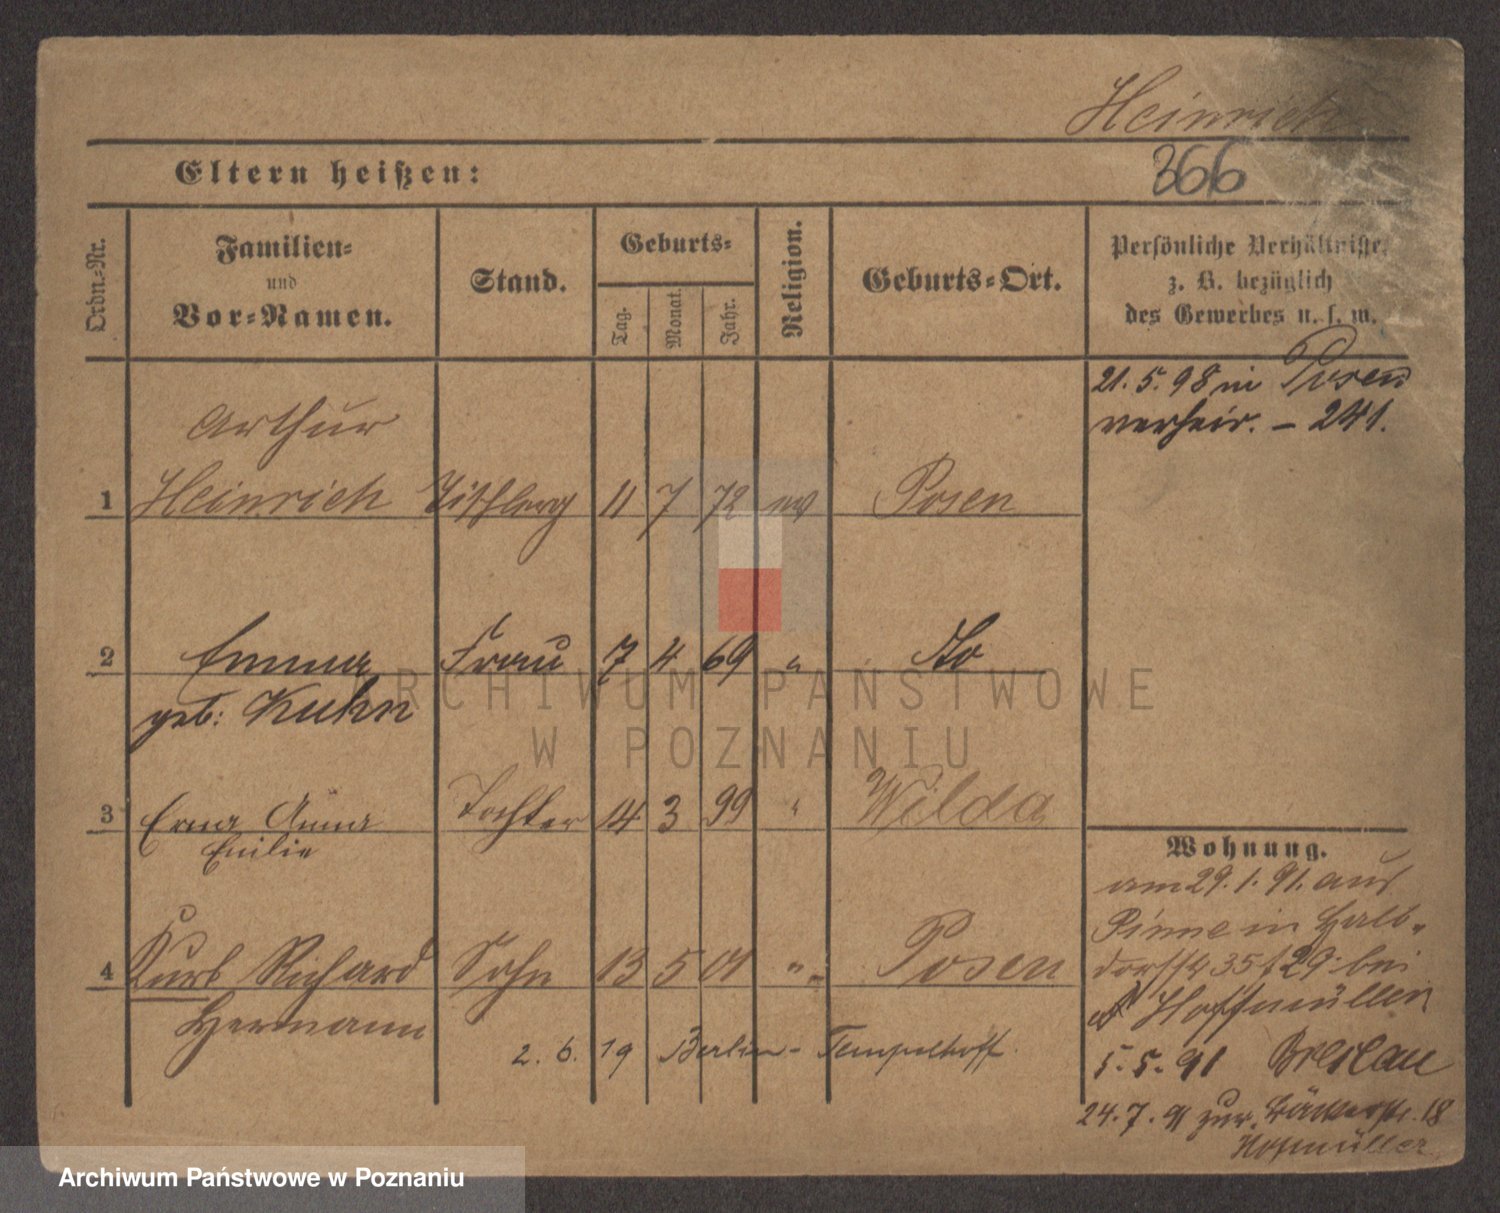 Heinrich
366
Eltern heißen:
Ordn.-Nr.
Familien-
und
Vor-Namen.
Stand.
Geburts-
Tag.
Monat.
Jahr.
Religion.
Geburts-Ort.
Persönliche Verhältnisse,
z. B. bezüglich
des Gewerbes u. s. w.
21. 5. 98 in Posen
verheir. - 241.
Arthur
1 Heinrich Tischlerg 11 7 72 ev Posen
2 Emma Frau 7 4 69 " do
geb: Kuhn
3 Erna Anna Tochter 14 3 99 " Wilda
Emilie
4 Kurt Richard Sohn 13 5 01 " " Posen
Hermann
2. 6. 19 Berlin - Tempelhoff.
Wohnung.
am 29. 1. 91. aus
Pinne in Halb-
dorfstr 35 f 29. bei
Hoffmüller
5. 5. 91 Breslau
24. 7. 91 zur. Bäckerstr. 18
Hofmüller
ARCHIWUM PAŃSTWOWE
W POZNANIU
Archiwum Państwowe w Poznaniu